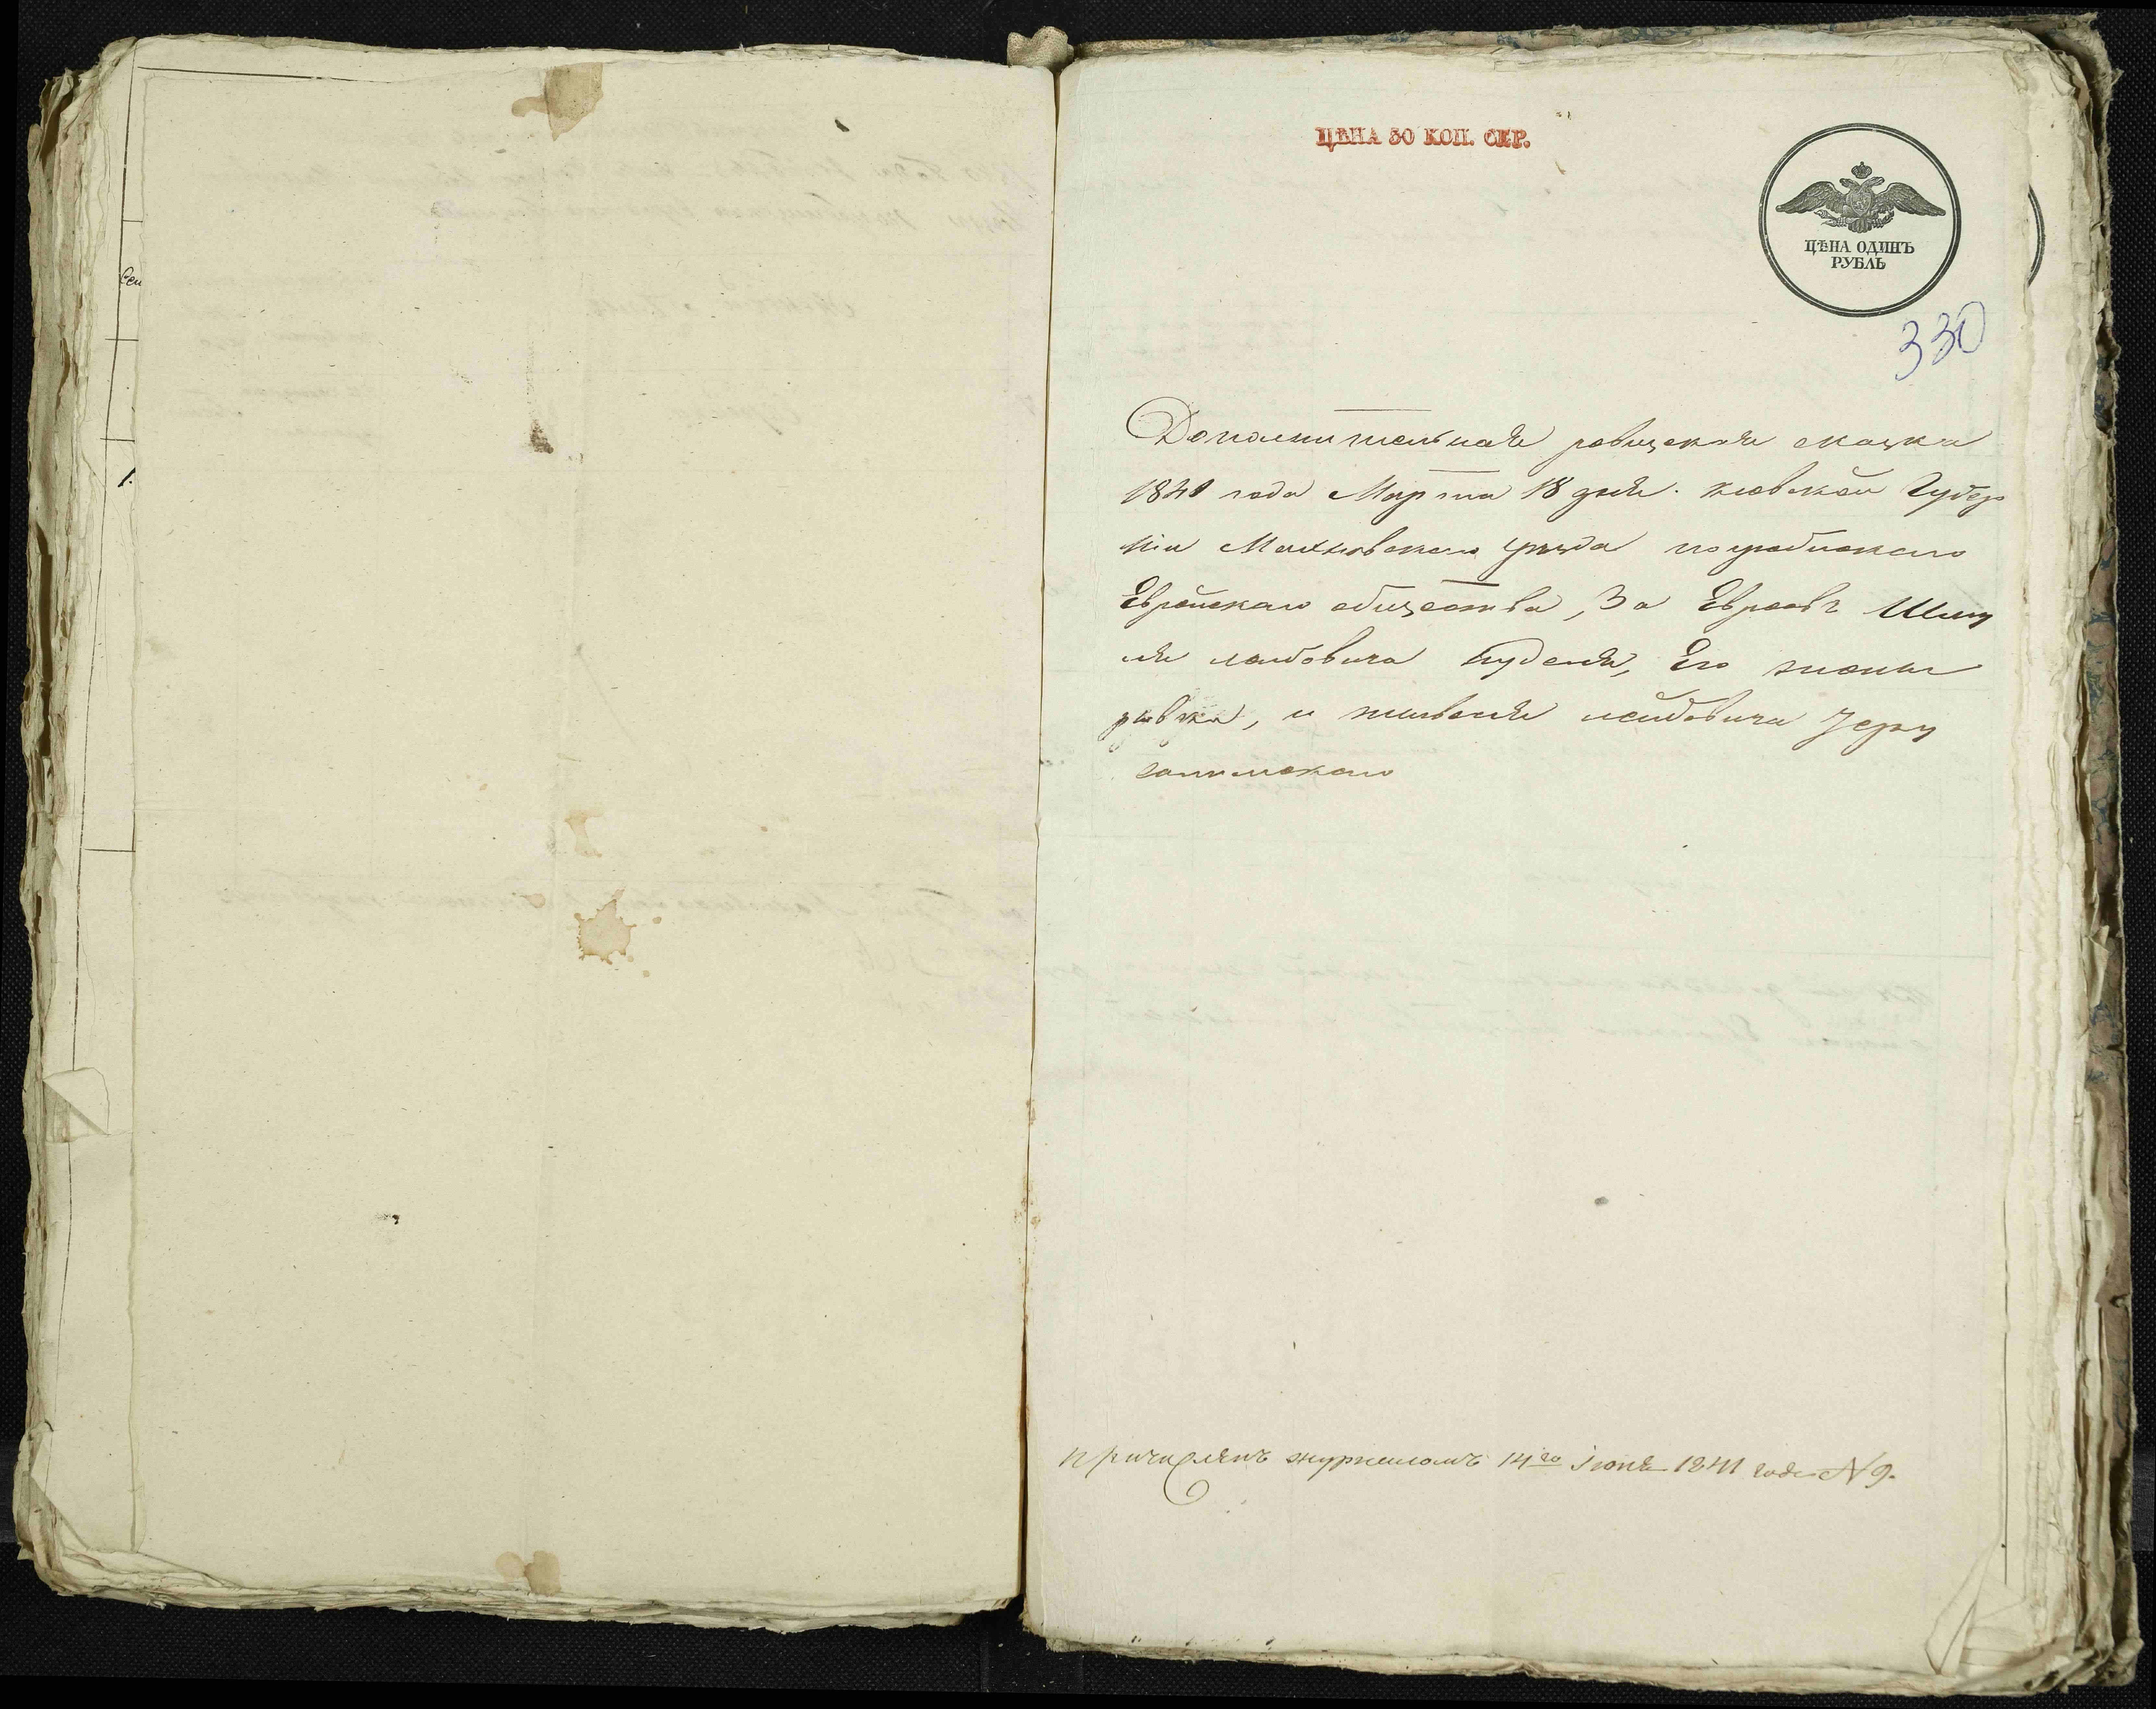 Сем
1.
ЦѢНА 30 КОП. СЕР.
ЦѢНА ОДИНЪ
РУБЛЬ
330
Дополнительная ревизская сказка
1841 года Марта 18 дня. киевской Губер
ніи Махновскаго уезда погребискаго
Еврейскаго общества, За Евреевъ Шму
ля лейбовича Его жены
ривки, и лейбовича Iеру
салимскаго
причисленъ журналомъ 14го Iюня 1841 года N 9.